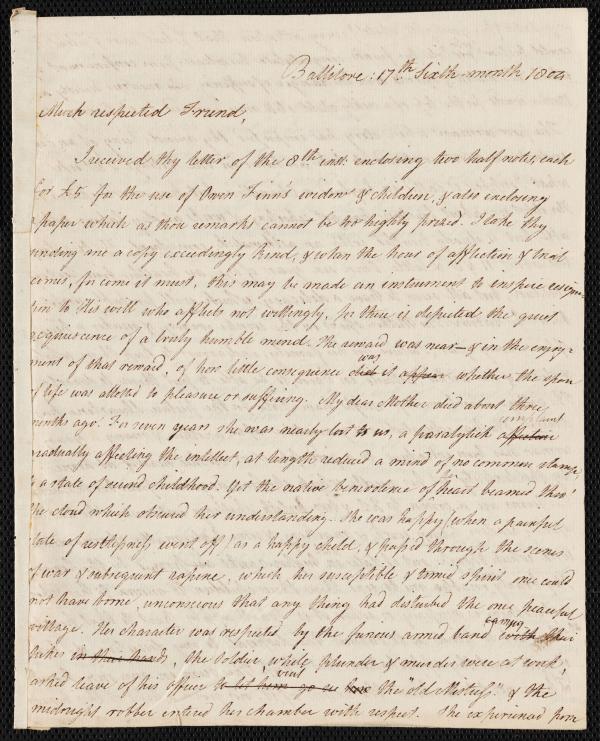 Ballitore: 17th Sixth-month 1802
Much respected Friend,
I received thy letter of the 8th inst: enclosing two half notes, each
for £5 for the use of Owen Finn's widow & children, & also enclosing
a paper which as thou remarks cannot be too highly prized. I take thy
sending me a copy exceedingly kind, & when the hour of affliction & trial
comes, for come it must, this may be made an instrument to inspire resigna-
tion to His will who afflicts not willingly, for there is depicted the quiet
acquiescence of a truly humble mind. The reward was near — & in the enjoy=
ment of that reward, of how little consequence was it whether the span
of life was allotted to pleasure or suffering. My dear Mother died about three
months ago. For seven years she was nearly lost to us, a paralytick complaint
gradually affecting the intellect, at length reduced a mind of no common stamp,
to a state of second childhood. Yet the native benevolence of heart beamed thro'
the cloud which obscured her understanding. She was happy (when a painful
state of restlessness went off) as a happy child, & passed through the scenes
of war & subsequent rapine, which her susceptible & timid spirit once could
not have borne, unconscious that any thing had disturbed the once peaceful
village. Her character was respected by the furious armed band carrying their
pikes in their hands, the soldier, while plunder & murder were at work,
asked leave of his officer to let him go to visit the "old Mistress" & the
midnight robber entered her chamber with respect. She experienced from